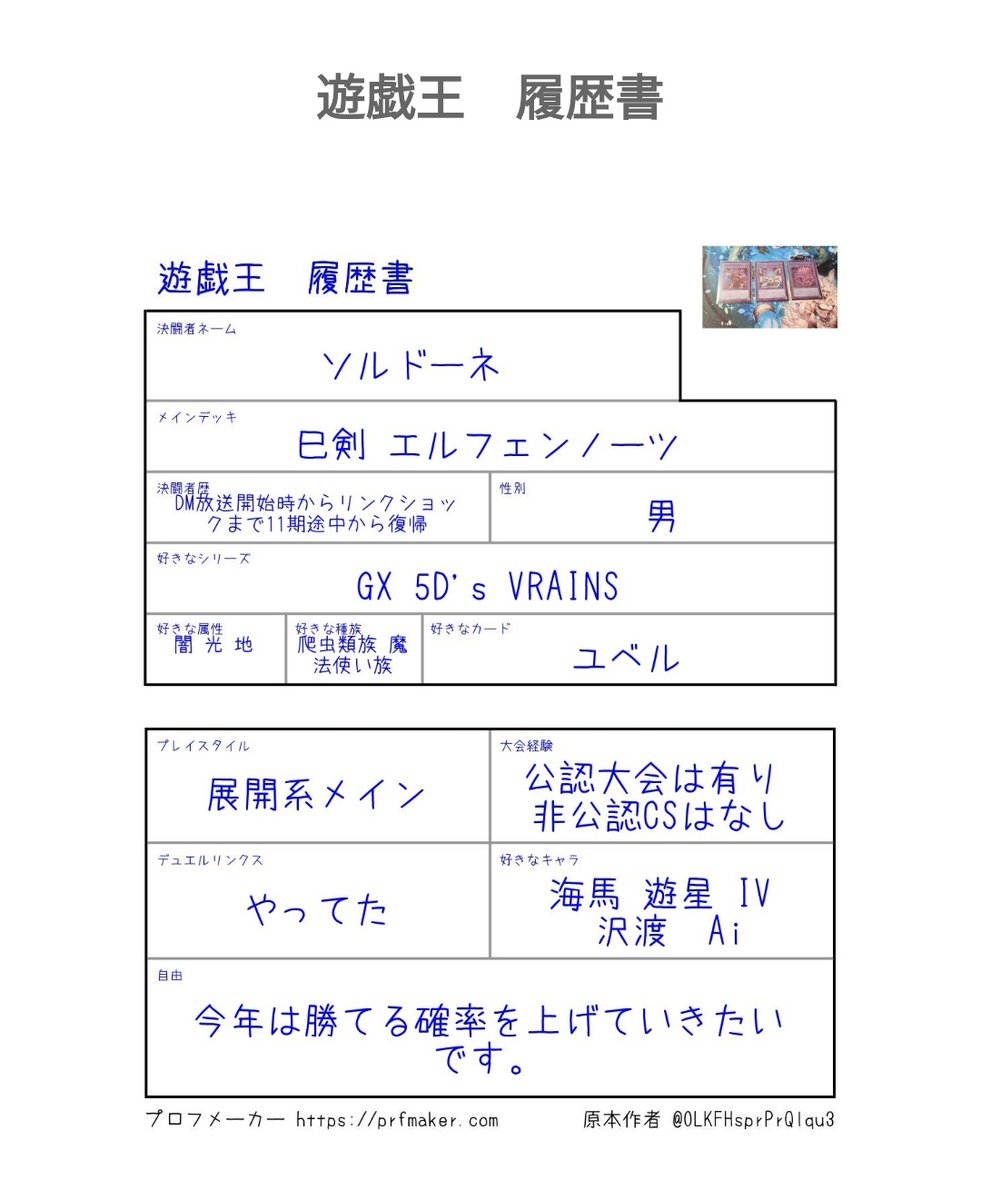 遊戯王　履歴書
遊戯王　履歴書
決闘者ネーム
ソルドーネ
メインデッキ
巳剣 エルフェンノーツ
決闘者歴
DM放送開始時からリンクショッ
クまで11期途中から復帰
性別
男
好きなシリーズ
GX 5D's VRAINS
好きな属性
闇 光 地
好きな種族
爬虫類族 魔
法使い族
好きなカード
ユベル
プレイスタイル
展開系メイン
大会経験
公認大会は有り
非公認CSはなし
デュエルリンクス
やってた
好きなキャラ
海馬 遊星 IV
沢渡　Ai
自由
今年は勝てる確率を上げていきたい
です。
プロフメーカー https://prfmaker.com
原本作者 @OLKFHsprPrQlqu3